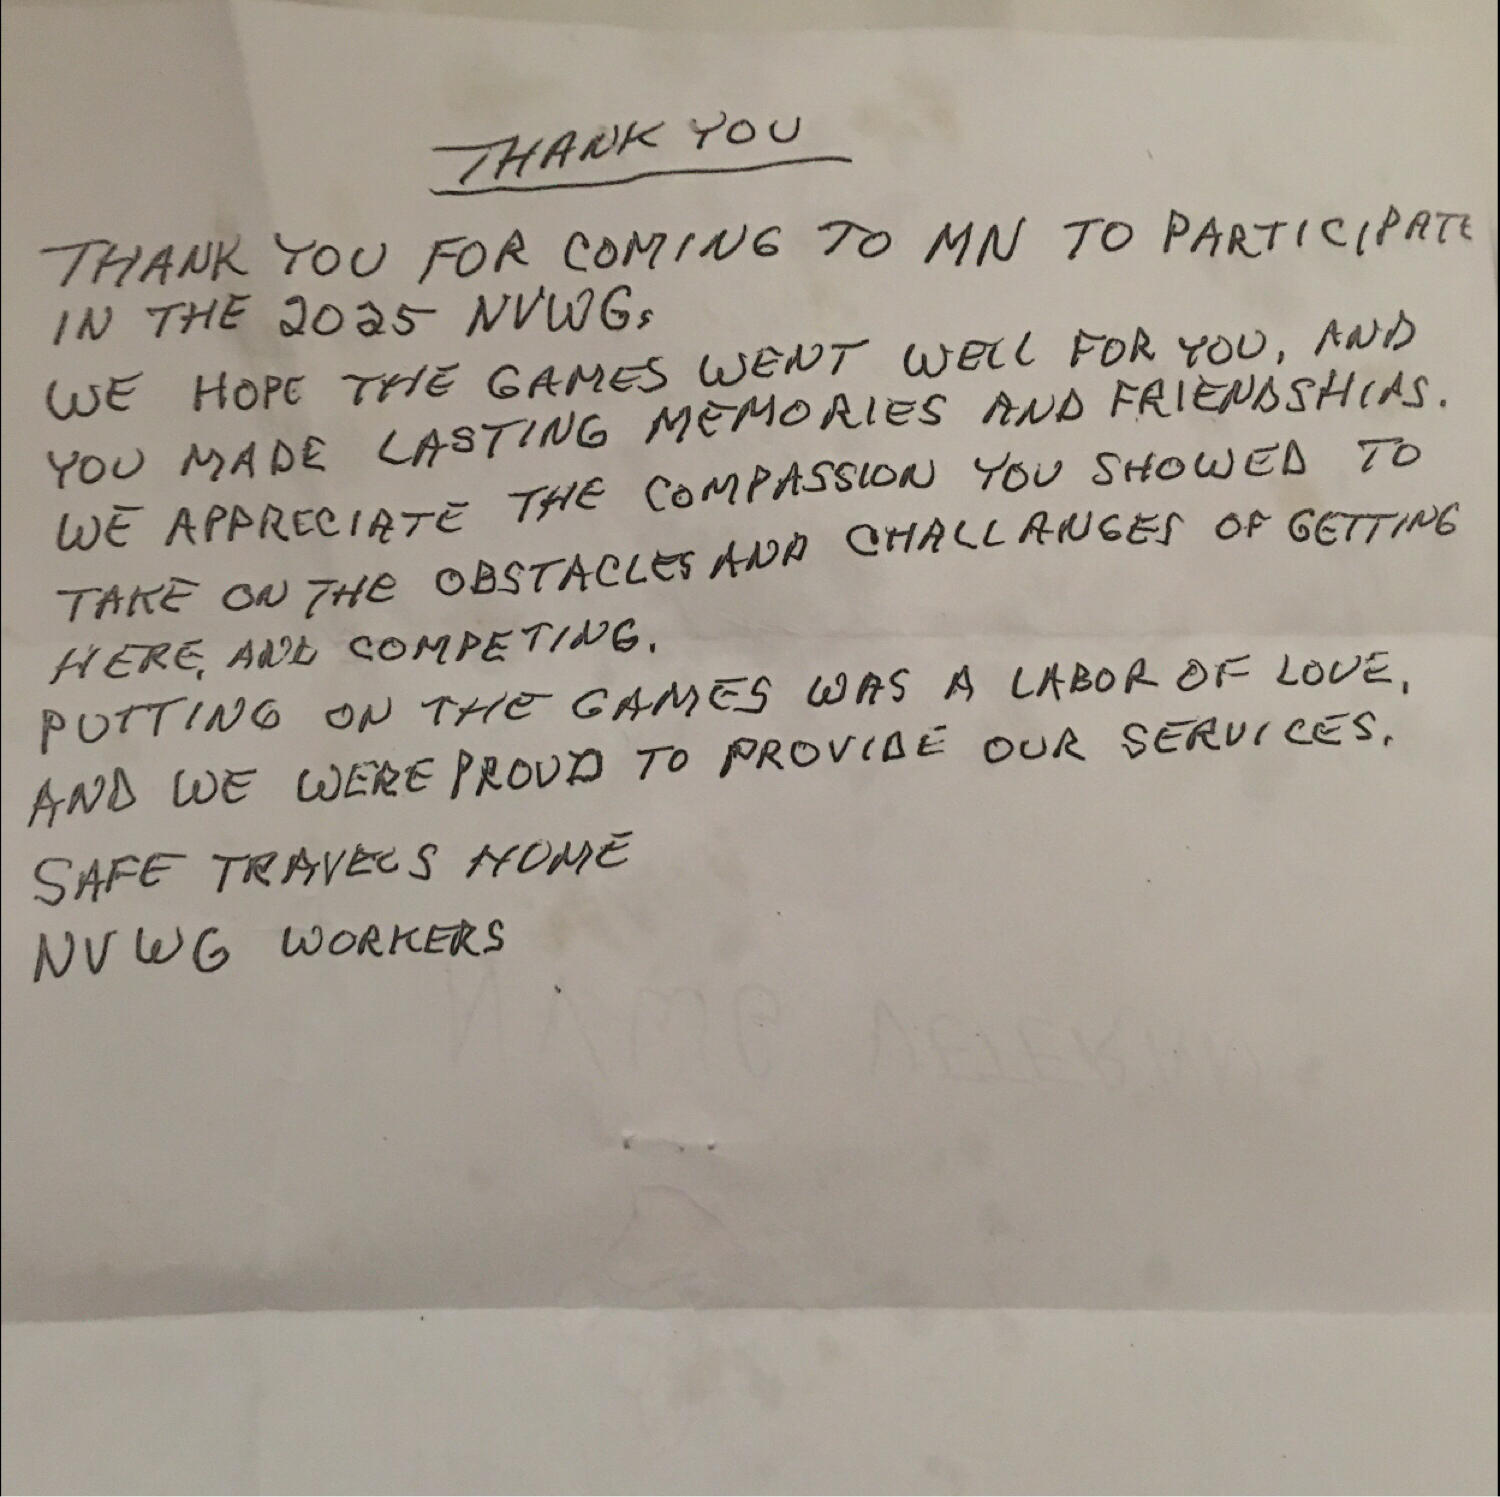 THANK YOU
THANK YOU FOR COMING TO MN TO PARTICIPATE
IN THE 2025 NVWGs
WE HOPE THE GAMES WENT WELL FOR YOU, AND
YOU MADE LASTING MEMORIES AND FRIENDSHIPS.
WE APPRECIATE THE COMPASSION YOU SHOWED TO
TAKE ON THE OBSTACLES AND CHALLANGES OF GETTING
HERE, AND COMPETING.
PUTTING ON THE GAMES WAS A LABOR OF LOVE,
AND WE WERE PROUD TO PROVIDE OUR SERVICES.
SAFE TRAVELS HOME
NVWG WORKERS
NVWG VETERAN